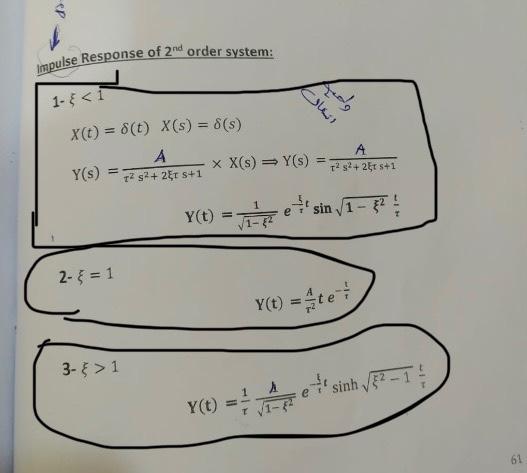 Impulse Response of 2nd order system:
1- ξ < 1
X(t) = δ(t) X(s) = δ(s)
Y(s) = A / τ² s² + 2ξτ s+1 × X(s) ⟹ Y(s) = A / τ² s² + 2ξτ s+1
Y(t) = 1 / √1− ξ² e^−ξ/τ t sin √1 − ξ² t/τ
2- ξ = 1
Y(t) = A/τ² t e^−t/τ
3- ξ > 1
Y(t) = 1/τ A / √1−ξ² e^−ξ/τ t sinh √ξ² − 1 t/τ
61